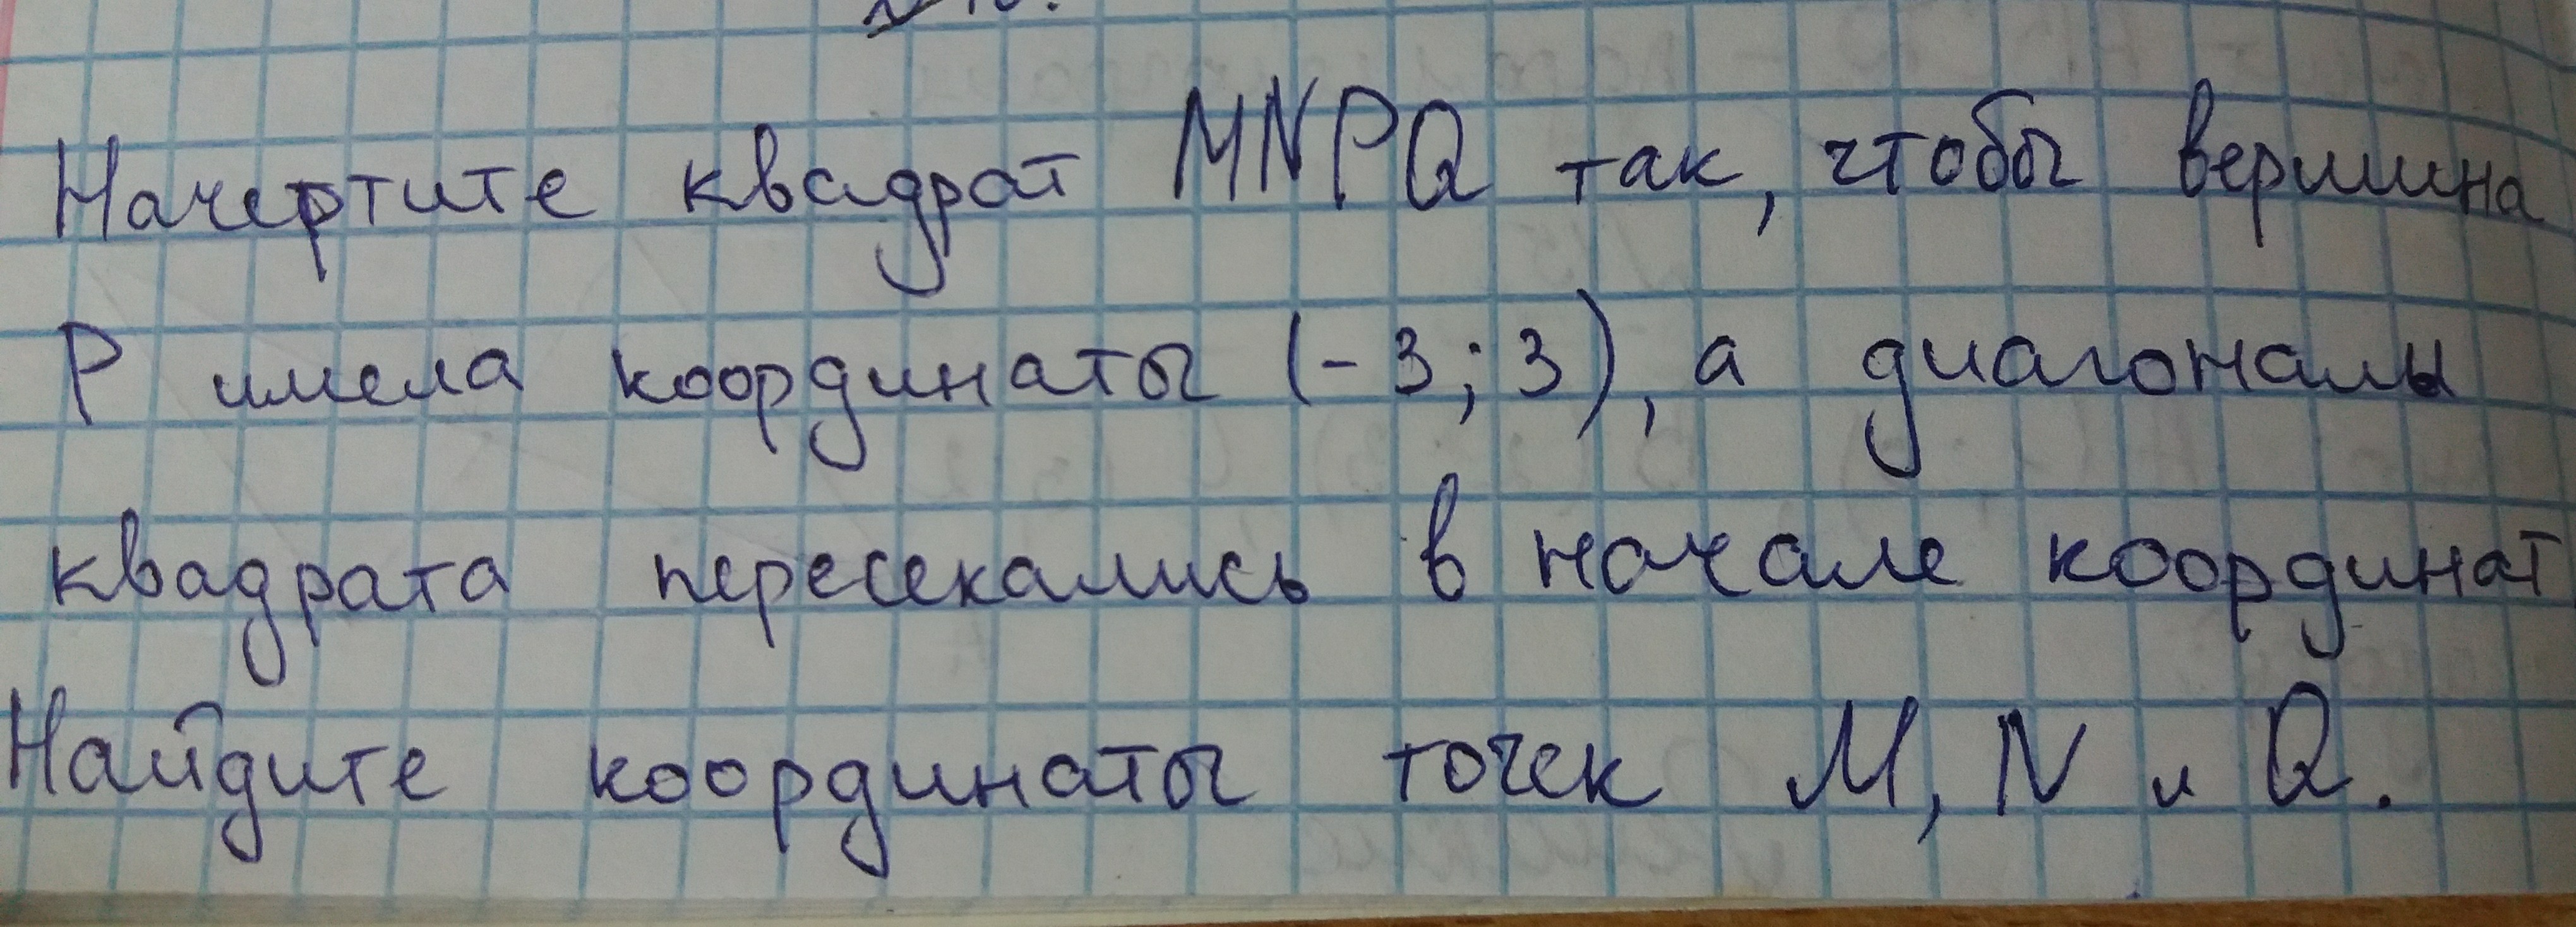 Начертите квадрат MNPQ так, чтобы вершина
P имела координаты (-3; 3), а диагонали
квадрата пересекались в начале координат
Найдите координаты точек M, N и Q.